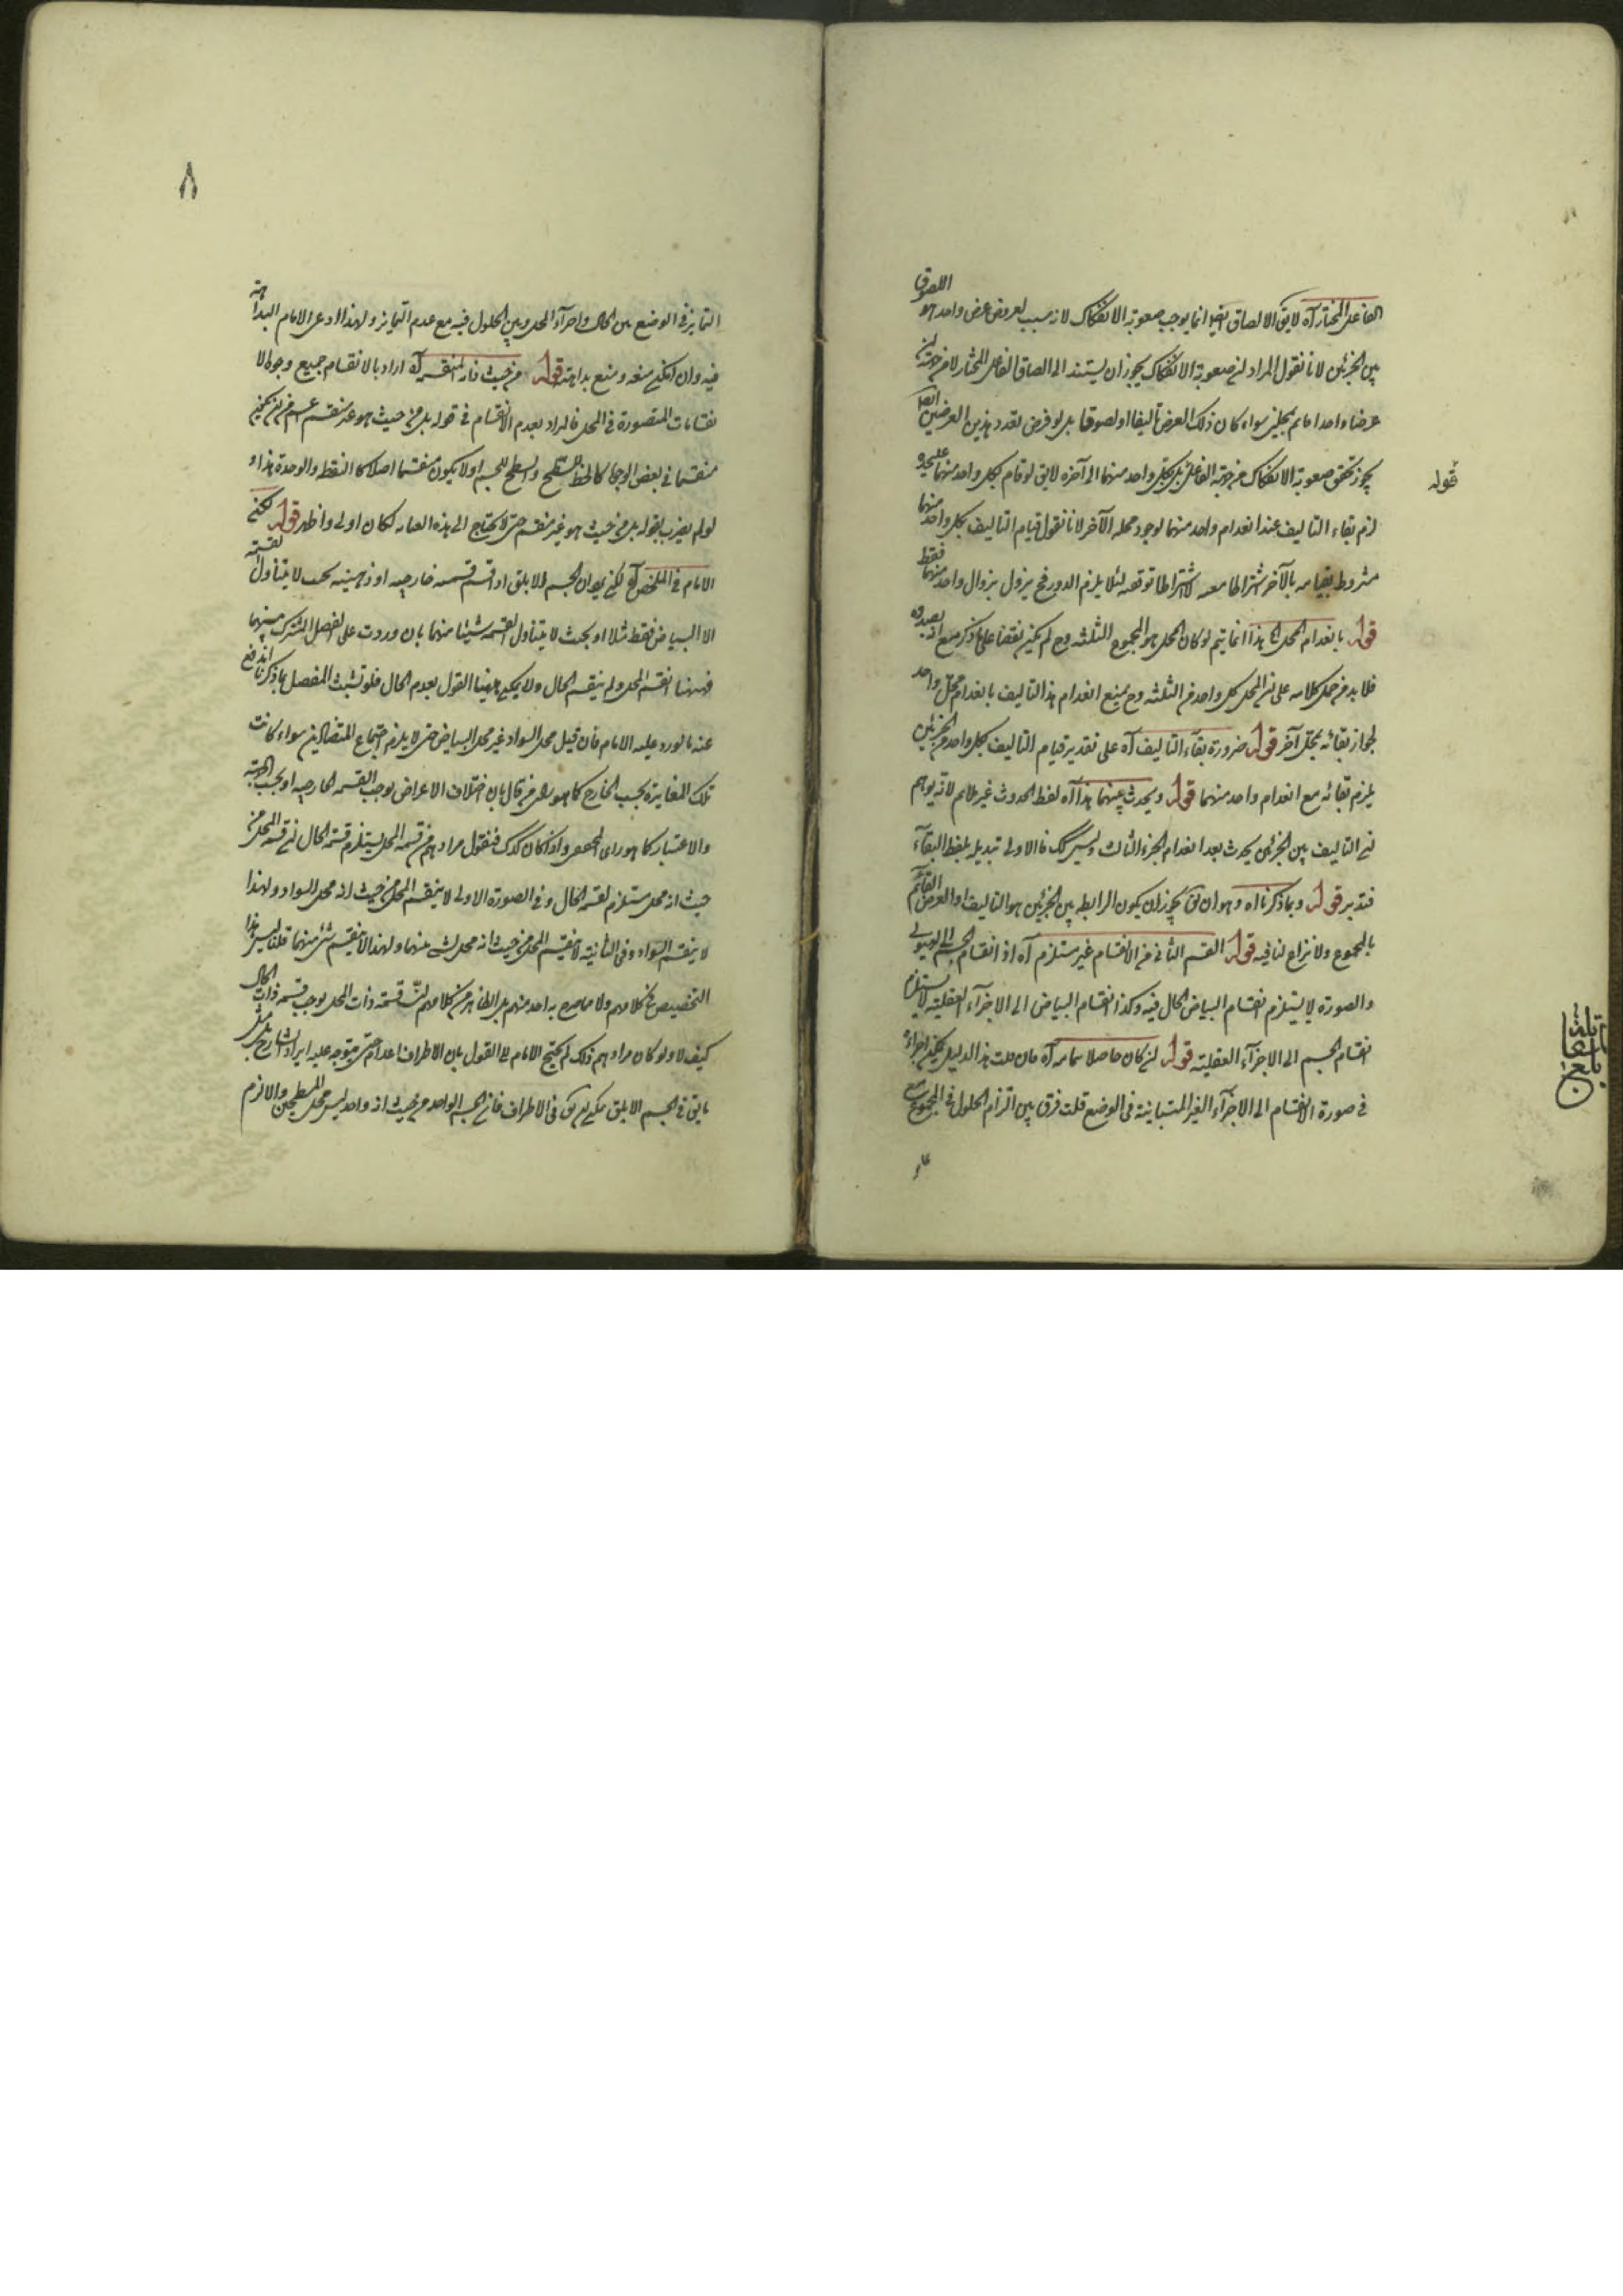 الفاعل المختار آه لا يق الالصاق ايضا انما يوجب صعوبة الانفكاك لانه سبب لعروض عرض واحد هو اللصوق
بين الجزئين لانا نقول المراد ان صعوبة الانفكاك يجوز ان يستند الى الصاق الفاعل المختار لا من جهة ان
عرضا واحدا قائم بمحلين سواء كان ذلك العرض تأليفا او لصوقا بل لو فرض تعدد هذين العرضين ايضا
يجوز تحقق صعوبة الانفكاك من جهة الفاعل بكل واحد منهما الى آخره لا يق لو قام بكل واحد منهما عليحدة
لزم بقاء التاليف عند انعدام واحد منهما لوجود محله الآخر لانا نقول قيام التاليف بكل واحد منهما
مشروط بقيامه بالآخر اشتراطا معه لا اشتراطا توقفه لئلا يلزم الدور فح يزول بزوال واحد منهما فقط
قوله بانعدام المحل الخ هذا انما يتم لو كان المحل هو المجموع الثلثه وح لم يكن نقضا على ما ذكر مع انه بصدده
فلا بد من حمل كلامه على ان المحل كل واحد من الثلثه وح يمنع انعدام هذا التاليف بانعدام محل واحد
لجواز بقائه بمحل آخر قوله ضرورة بقاء التاليف آه على تقدير قيام التاليف بكل واحد من الجزئين
يلزم بقائه مع انعدام واحد منهما قوله ويحدث بينهما هذا آه لفظ الحدوث غير ملايم لانه يوهم
ان التاليف بين الجزئين يحدث بعد انعدام الجزء الثالث وليس كك فالاولى تبديله بلفظ البقاء
فتدبر قوله وبما ذكرنا آه وهو ان يق يجوز ان يكون الرابطه بين الجزئين هو التاليف او العرض القائم
بالمجموع ولا نزاع لنا فيه قوله القسم الثاني من الانقسام غير مستلزم آه اذ انقسام الجسم الى الهيولى
والصورة لا يستلزم انقسام البياض الحال فيه وكذا انقسام البياض الى الاجزآء العقلية لا يستلزم
انقسام الجسم الى الاجزآء العقلية قوله ان كان حاصلا بتمامه آه فان قلت هذا الدليل يمكن اجراءه
في صورة الانقسام الى الاجزآء الغير المتباينة في الوضع قلت فرق بين التزام الحلول في المجموع مع
قوله
بلغ
التمايز في الوضع بين الحال واجزآء المحل وبين الحلول فيه مع عدم التمايز ولهذا ادعى الامام البداهة
فيه وان امكن منعه ومنع بداهته قوله من حيث ذاته المنقسمة آه اراد بالانقسام جميع وجوه الا
نقسامات المتصورة في المحل فالمراد بعدم الانقسام في قوله بل من حيث هو غير منقسم اعم من ان يكون
منقسما في بعض الوجوه كالخط للسطح والسطح للجسم او لا يكون منقسما اصلا كالنقطة والوحدة هذا و
لو لم يضرب بقوله بل من حيث هو غير منقسم حتى لا يحتاج الى هذه العناية لكان اولى واظهر قوله لكن
الامام في الملخص آه لكن يق ان الجسم الابلق اذا قسم قسمة خارجيه او ذهنيه بحيث لا يتناول القسمة
الا البياض فقط مثلا او بحيث لا يتناول القسمه شيئا منهما بان وردت على الفصل المشترك بينهما
فههنا انقسم المحل ولم ينقسم الحال ولا يمكن ههنا القول بعدم الحال فلو تشبث المفصل بما ذكرنا اندفع
عنه ما اورد عليه الامام فان قيل محل السواد غير محل البياض حتى لا يلزم اجتماع المتضادين سواء كانت
تلك المغايرة بحسب الخارج كما هو رأى من قال بان اختلاف الاعراض يوجب القسمه الخارجيه او بحسب الوهم
والاعتبار كما هو رأى المحققين واذا كان كذلك فنقول مرادهم من قسمة المحل يستلزم قسمة الحال ان قسمة المحل من
حيث انه محل مستلزم لقسمة الحال وفي الصورة الاولى لا ينقسم المحل من حيث انه محل السواد ولهذا
لا ينقسم السواد وفي الثانية لا ينقسم المحل من حيث انه محل لشئ منهما ولهذا لا ينقسم شئ منهما قلنا ليس هذا
التخصيص في كلامهم ولا صرح به احد منهم بل الظاهر من كلامهم ان قسمة ذات المحل يوجب قسمة ذات الحال
كيف لا ولو كان مرادهم ذلك لم يحتج الامام الى القول بان الاطراف اعدام حتى يتوجه عليه ايراد الشارح بل مثل
ما يق في الجسم الابلق يمكن ان يق في الاطراف فان الجسم الواحد من حيث انه واحد ليس محل للسطحين والا لزم